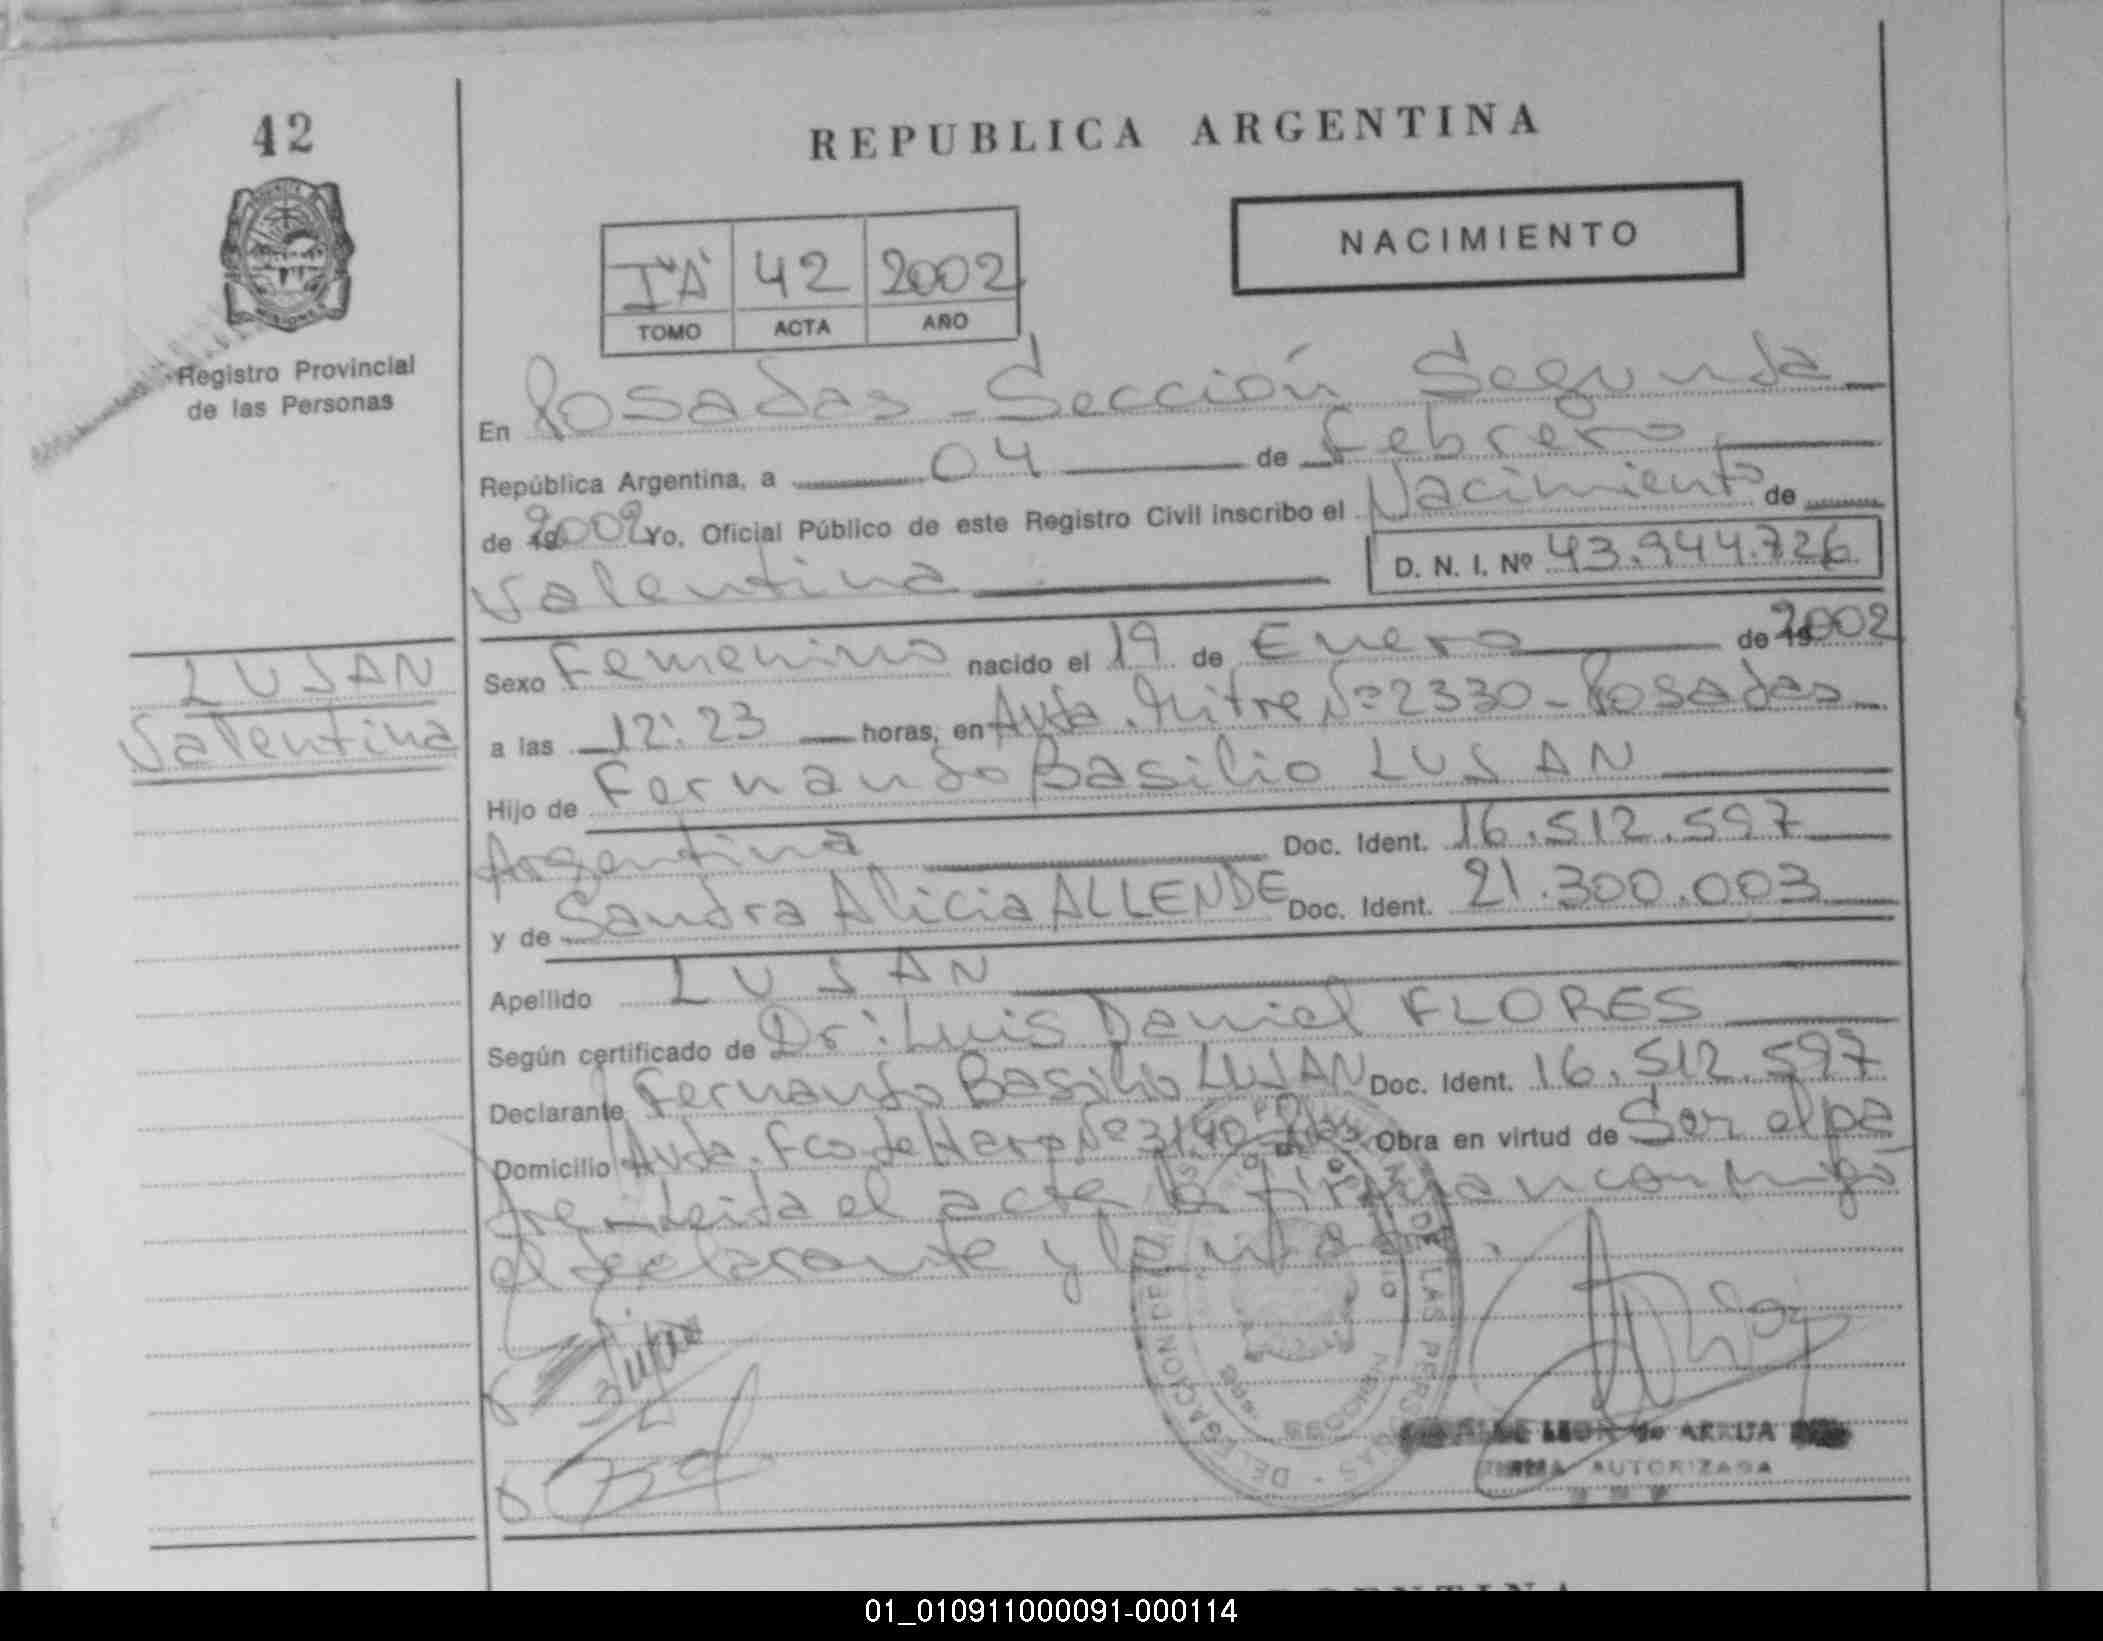 42
REPUBLICA ARGENTINA
NACIMIENTO
I"A" 42 2002
TOMO ACTA AÑO
Registro Provincial
de las Personas
En Posadas - Sección Segunda
República Argentina, a 04 de Febrero
de 2002 Yo, Oficial Público de este Registro Civil inscribo el Nacimiento de
Valentina D. N. I. Nº 43.944.726
LUJAN
Valentina
Sexo Femenino nacido el 19 de Enero de 2002
a las 12:23 horas, en Avda. Mitre Nº 2330 - Posadas
Hijo de Fernando Basilio LUJAN
Argentina Doc. Ident. 16.512.597
y de Sandra Alicia ALLENDE Doc. Ident. 21.300.003
Apellido LUJAN
Según certificado de Dr: Luis Daniel FLORES
Declarante Fernando Basilio LUJAN Doc. Ident. 16.512.597
Domicilio Avda. Fco de Haro Nº 3140 Obra en virtud de Ser el pa
dre - Leida el acta la firman conmigo
el declarante y la madre.
LEON de ARRUA
FIRMA AUTORIZADA
01_010911000091-000114